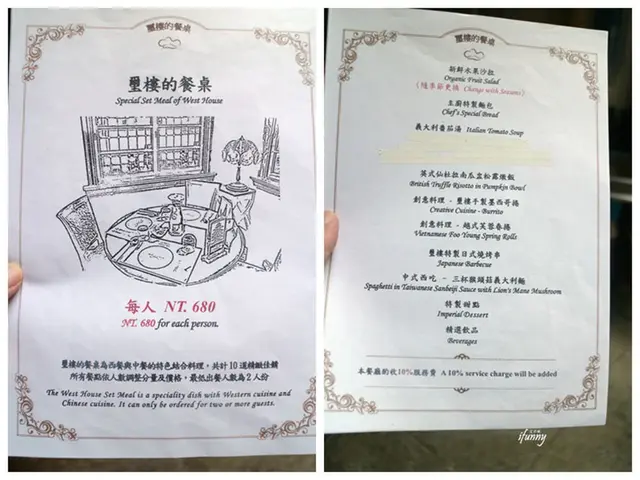 璽樓的餐桌
璽樓的餐桌
Special Set Meal of West House
每人 NT. 680
NT. 680 for each person.
璽樓的餐桌為西餐與中餐的特色結合料理，共計10道精緻佳餚
所有餐點依人數調整分量及價格，最低出餐人數為2人份
The West House Set Meal is a speciality dish with Western cuisine and
Chinese cuisine. It can only be ordered for two or more guests.
璽樓的餐桌
新鮮水果沙拉
Organic Fruit Salad
(隨季節更換 Change with Seasons)
主廚特製麵包
Chef's Special Bread
義大利番茄湯 Italian Tomato Soup
英式仙杜拉南瓜盅松露燉飯
British Truffle Risotto in Pumpkin Bowl
創意料理 - 璽樓手製墨西哥捲
Creative Cuisine - Burrito
創意料理 - 越式芙蓉春捲
Vietnamese Foo Young Spring Rolls
璽樓特製日式燒烤串
Japanese Barbecue
中式西吃 - 三杯猴頭菇義大利麵
Spaghetti in Taiwanese Sanbeiji Sauce with Lion's Mane Mushroom
特製甜點
Imperial Dessert
精選飲品
Beverages
本餐廳酌收10%服務費 A 10% service charge will be added
ifunny